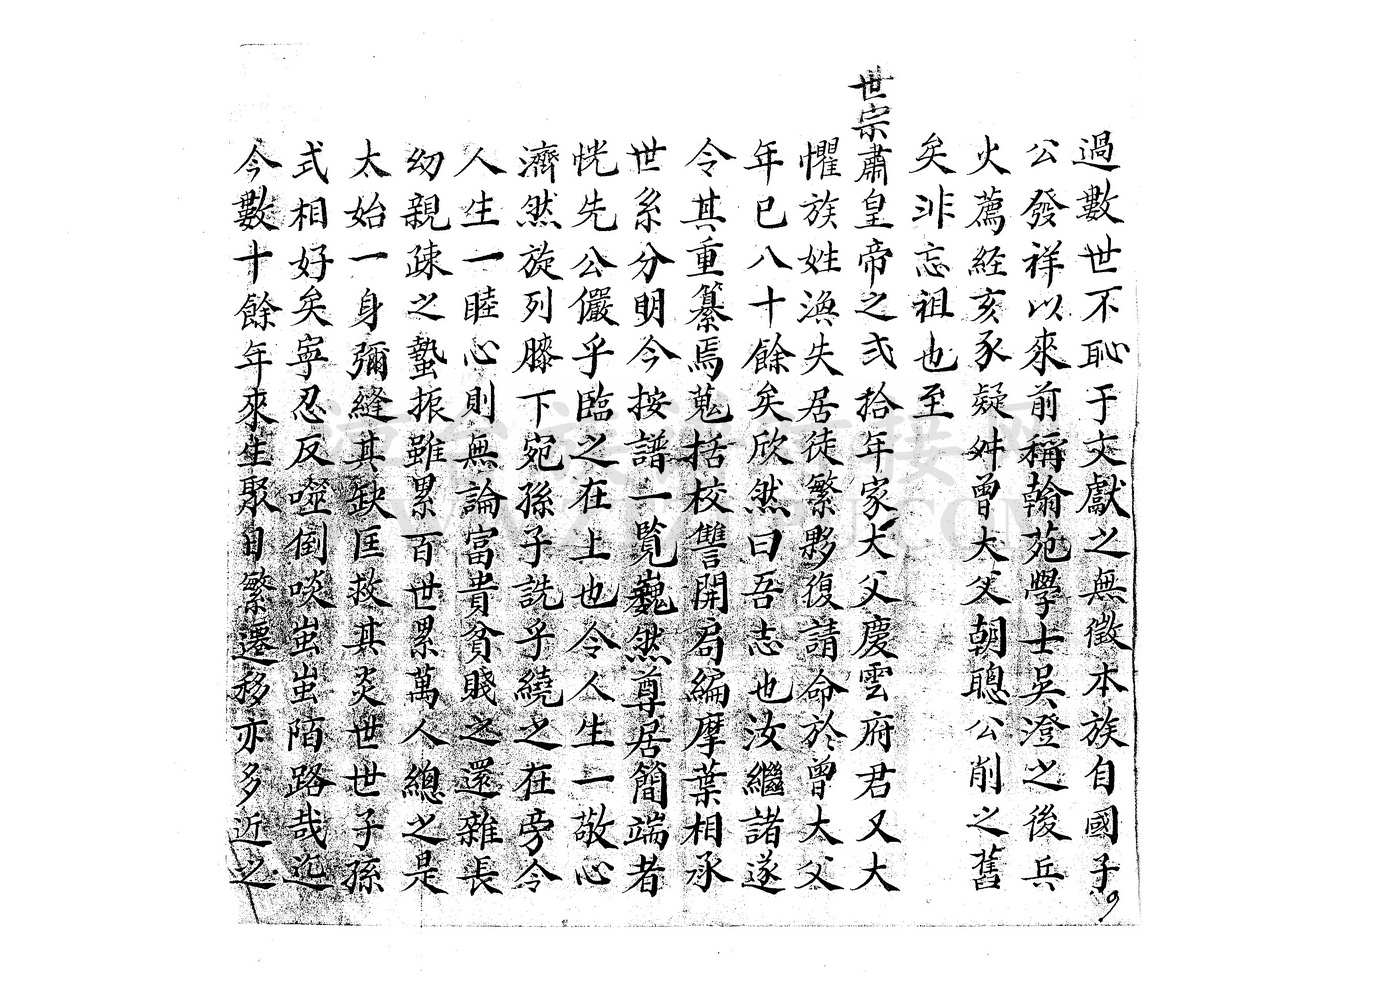 過數世不恥于文獻之無徵本族自國子
公發祥以來前稱翰苑學士吳澄之後兵
火薦經亥豕疑舛曾大父朝聰公削之舊
矣非忘祖也至
世宗肅皇帝之弍拾年家大父慶雲府君又大
懼族姓渙失居徒繁夥復請命於曾大父
年已八十餘矣欣然曰吾志也汝繼諸遂
令其重纂焉蒐括校讐開扃編摩葉相承
世系分明今按譜一覧巍然尊居簡端者
恍先公儼乎臨之在上也令人生一敬心
濟然旋列膝下宛孫子詵乎繞之在旁令
人生一睦心則無論富貴貧賤之還雜長
幼親疎之蟄振雖累百世累萬人總之是
太始一身彌縫其缺匡救其災世世子孫
式相好矣寧忍反噬倒啖蚩蚩陌路哉迄
今數十餘年來生聚日繁遷移亦多近之